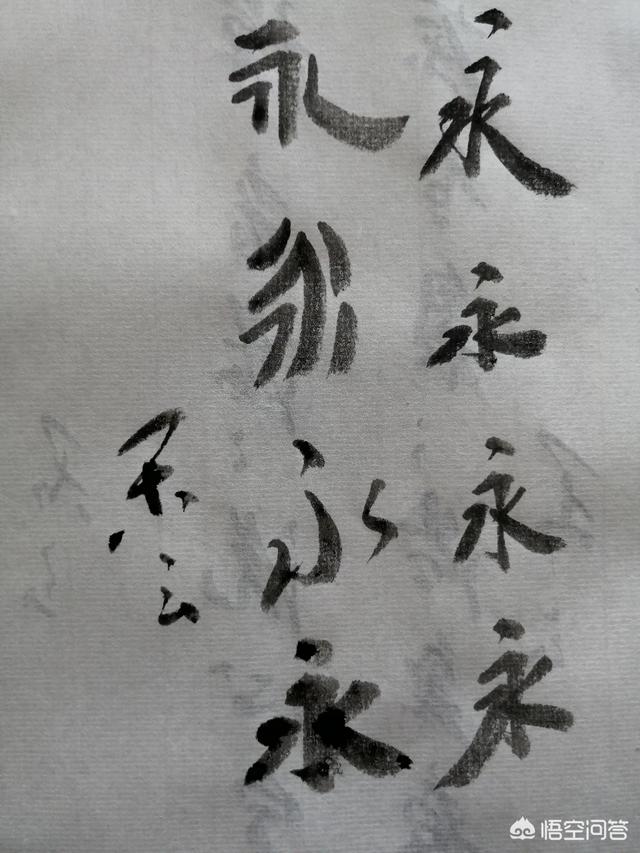 永永永永
永永永永
悟空问答